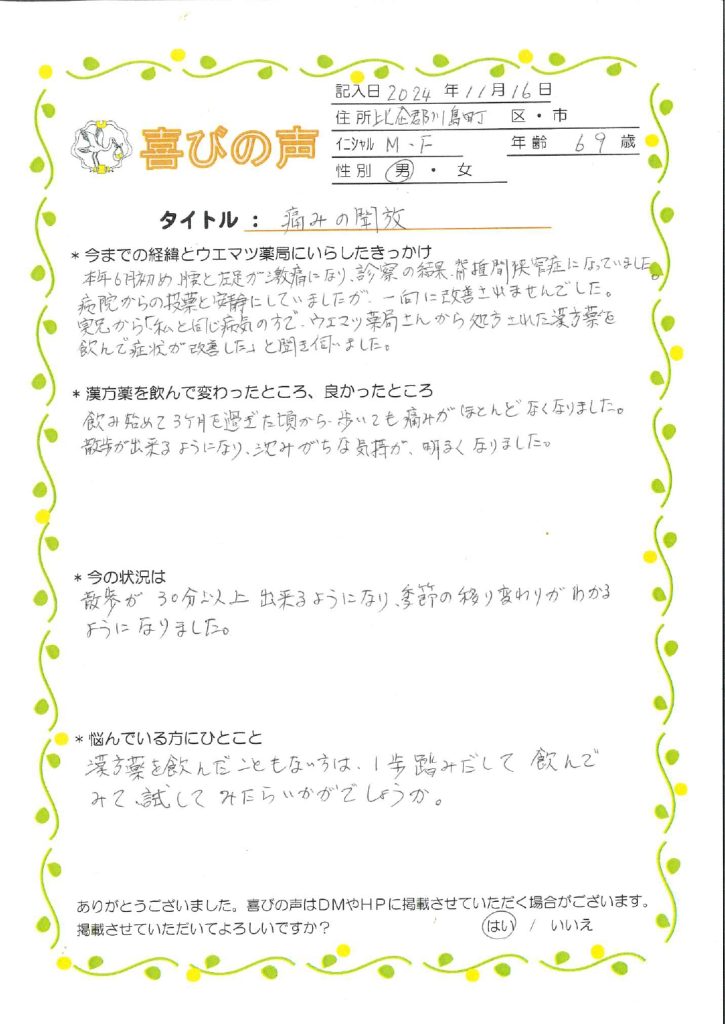 記入日 2024 年 11 月 16 日
住所 比企郡川島町 区・市
喜びの声
イニシャル M-F 年齢 69 歳
性別 男・女
タイトル： 痛みの開放
* 今までの経緯とウエマツ薬局にいらしたきっかけ
本年6月初め、腰と左足が激痛になり、診察の結果、脊椎間狭窄症になっていました。
病院からの投薬と安静にしていましたが、一向に改善されませんでした。
実兄から「私と同じ病気の方で、ウエマツ薬局さんから処方された漢方薬を
飲んで症状が改善した」と聞き伺いました。
* 漢方薬を飲んで変わったところ、良かったところ
飲み始めて3ケ月を過ぎた頃から、歩いても痛みがほとんどなくなりました。
散歩が出来るようになり、沈みがちな気持が、明るくなりました。
* 今の状況は
散歩が30分以上出来るようになり、季節の移り変わりがわかる
ようになりました。
* 悩んでいる方にひとこと
漢方薬を飲んだこともない方は、1歩踏みだして飲んで
みて、試してみたらいかがでしょうか。
ありがとうございました。喜びの声はDMやHPに掲載させていただく場合がございます。
掲載させていただいてよろしいですか？ はい / いいえ